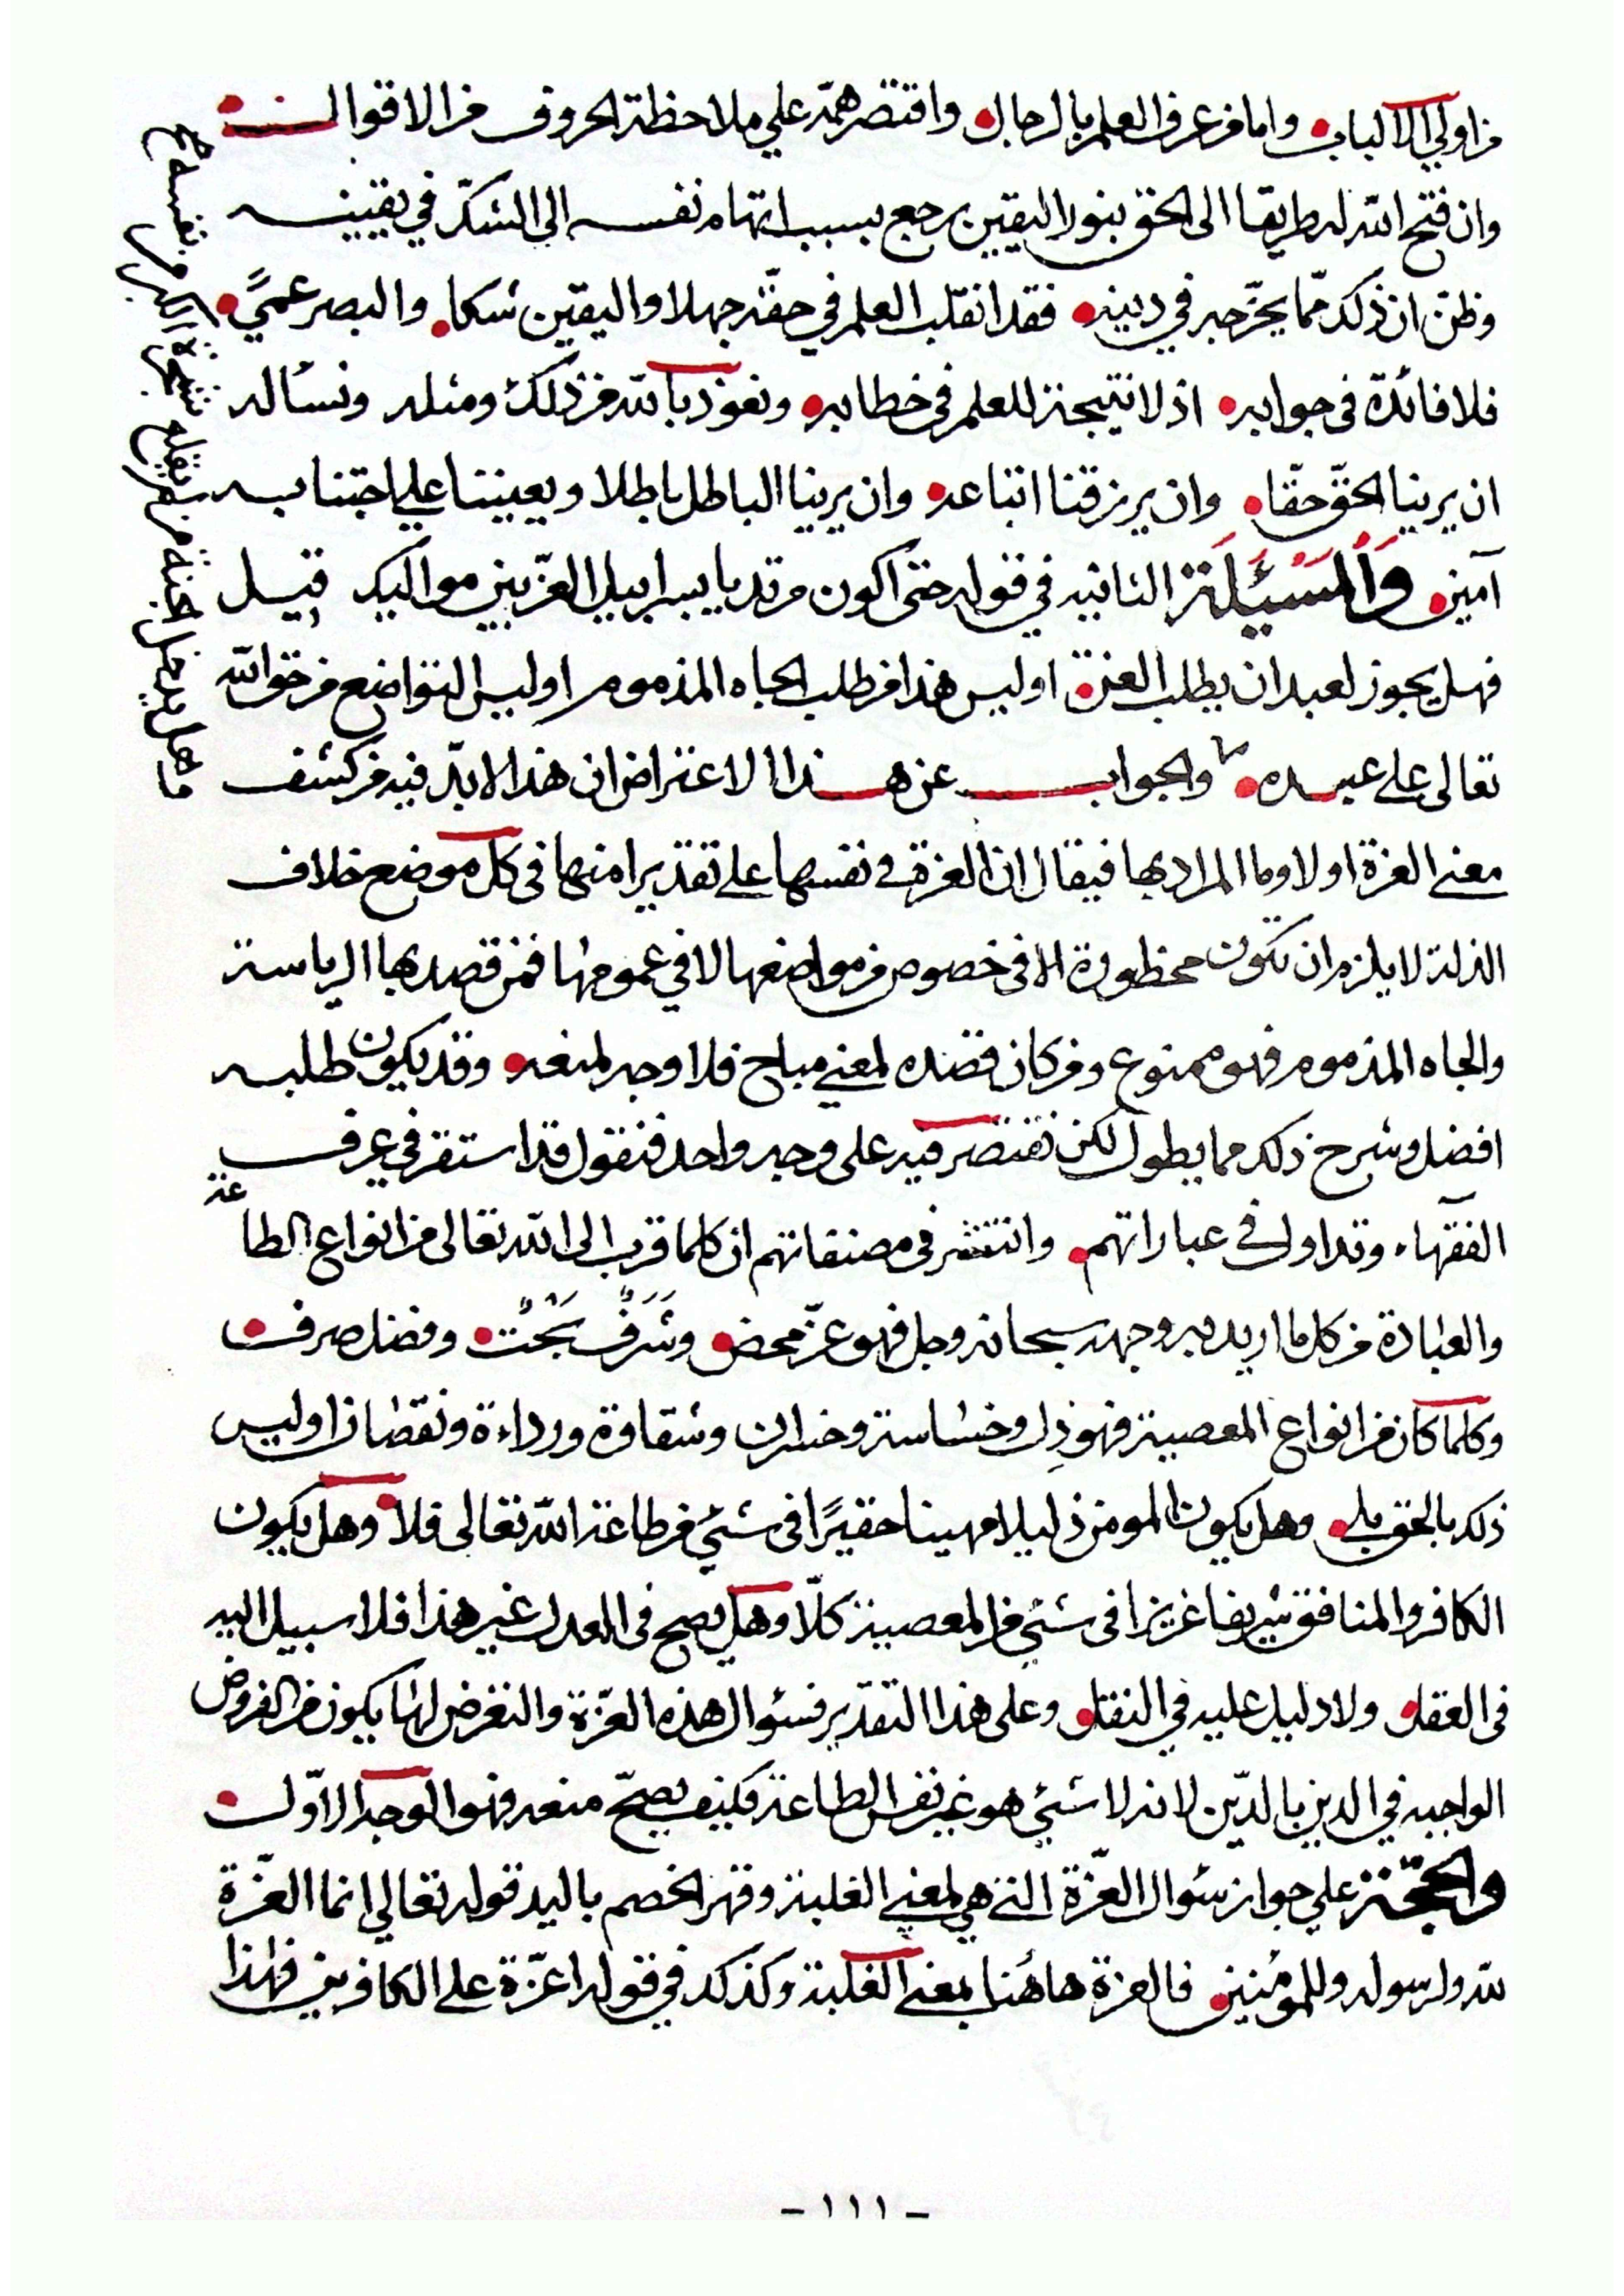 من اولي الالباب واما من عرف العلم بالرجال واقتصر همّه علي ملاحظة الحروف من الاقوال
وان فتح الله له طريقا الى الحق بنور اليقين يرجع بسبب اتهام نفسه الي الشكّ في يقينه
وظنّ ان ذلك ممّا يحرّجه في دينه فقد انقلب العلم في حقّه جهلا واليقين شكا والبصر عميً
فلا فائدة في جوابه اذ لا نتيجة للعلم في خطابه ونعوذ بالله من ذلك ومثله ونساله
ان يرينا الحقّ حقّا وان يرزقنا اتباعه وان يرينا الباطل باطلا ويعيننا علي اجتنابه
آمين وَالْمَسْئَلَة الثانيه في قوله حتى اكون مرتديا بسرابيل العزّ بين مواليك قيل
فهل يجوز لعبد ان يطلب العزة اوليس هذا من طلب الجاه المذموم اوليس التواضع من حق الله
تعالى علي عبده والجواب عن هذا الاعتراض ان هذا لا بدّ فيه من كشف
معني العزة اولا وما المراد بها فيقال ان العزة في نفسها علي تقدير امنها في كل موضع خلاف
الذلة لا يلزم ان تكون محظورة الا في خصوص من مواضعها لا في عمومها فمن قصد بها الرياسة
والجاه المذموم فهو ممنوع ومن كان قصده لمعني مباح فلا وجه لمنعه وقد يكون طلبه
افضل وشرح ذلك مما يطول لكن نقتصر فيه على وجه واحد فنقول قد استقر في عرف
الفقهاء وتداول في عباراتهم وانتشر في مصنفاتهم ان كلما قرب الى الله تعالى من انواع الطاعة
والعبادة من كل ما اريد به وجهه سبحانه وجل فهو عزّ محض وشَرَفٌ بَحْتٌ وفضل صرف
وكلما كان من انواع المعصية فهو ذل وخساسة وخسران وشقاوة ورداءة ونقصان اوليس
ذلك بالحق بلي وهل يكون المومن ذليلا مهينا حقيرًا في شئي من طاعة الله تعالى فلا وهل يكون
الكافر والمنافق شريفا عزيزا في شئي من المعصية كلّا وهل يصح في العدل غير هذا فلا سبيل اليه
في العقل ولا دليل عليه في النقل وعلى هذا التقدير فسؤال هذه العزّة والتعرض لها يكون من الفروض
الواجبه في الدين بالدّين لانه لا شئي هو غير نفس الطاعة فكيف يصحّ منعه فهو الوجه الاوّل
والحجّة علي جواز سؤال العزّة التي هي لمعني الغلبة وقهر الخصم باليد قوله تعالي انما العزّة
لله ولرسوله وللمؤمنين فالعزة هاهُنا بمعني الغلبة وكذلك في قوله اعزّة على الكافرين فهذا
- ١١١ -